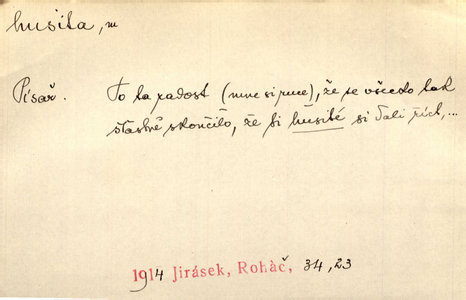 husita, m
Písař. To ta radost (mne si ruce), že se všecko tak
šťastně skončilo, že si husité si dali říct,...
1914 Jirásek, Roháč, 34, 23